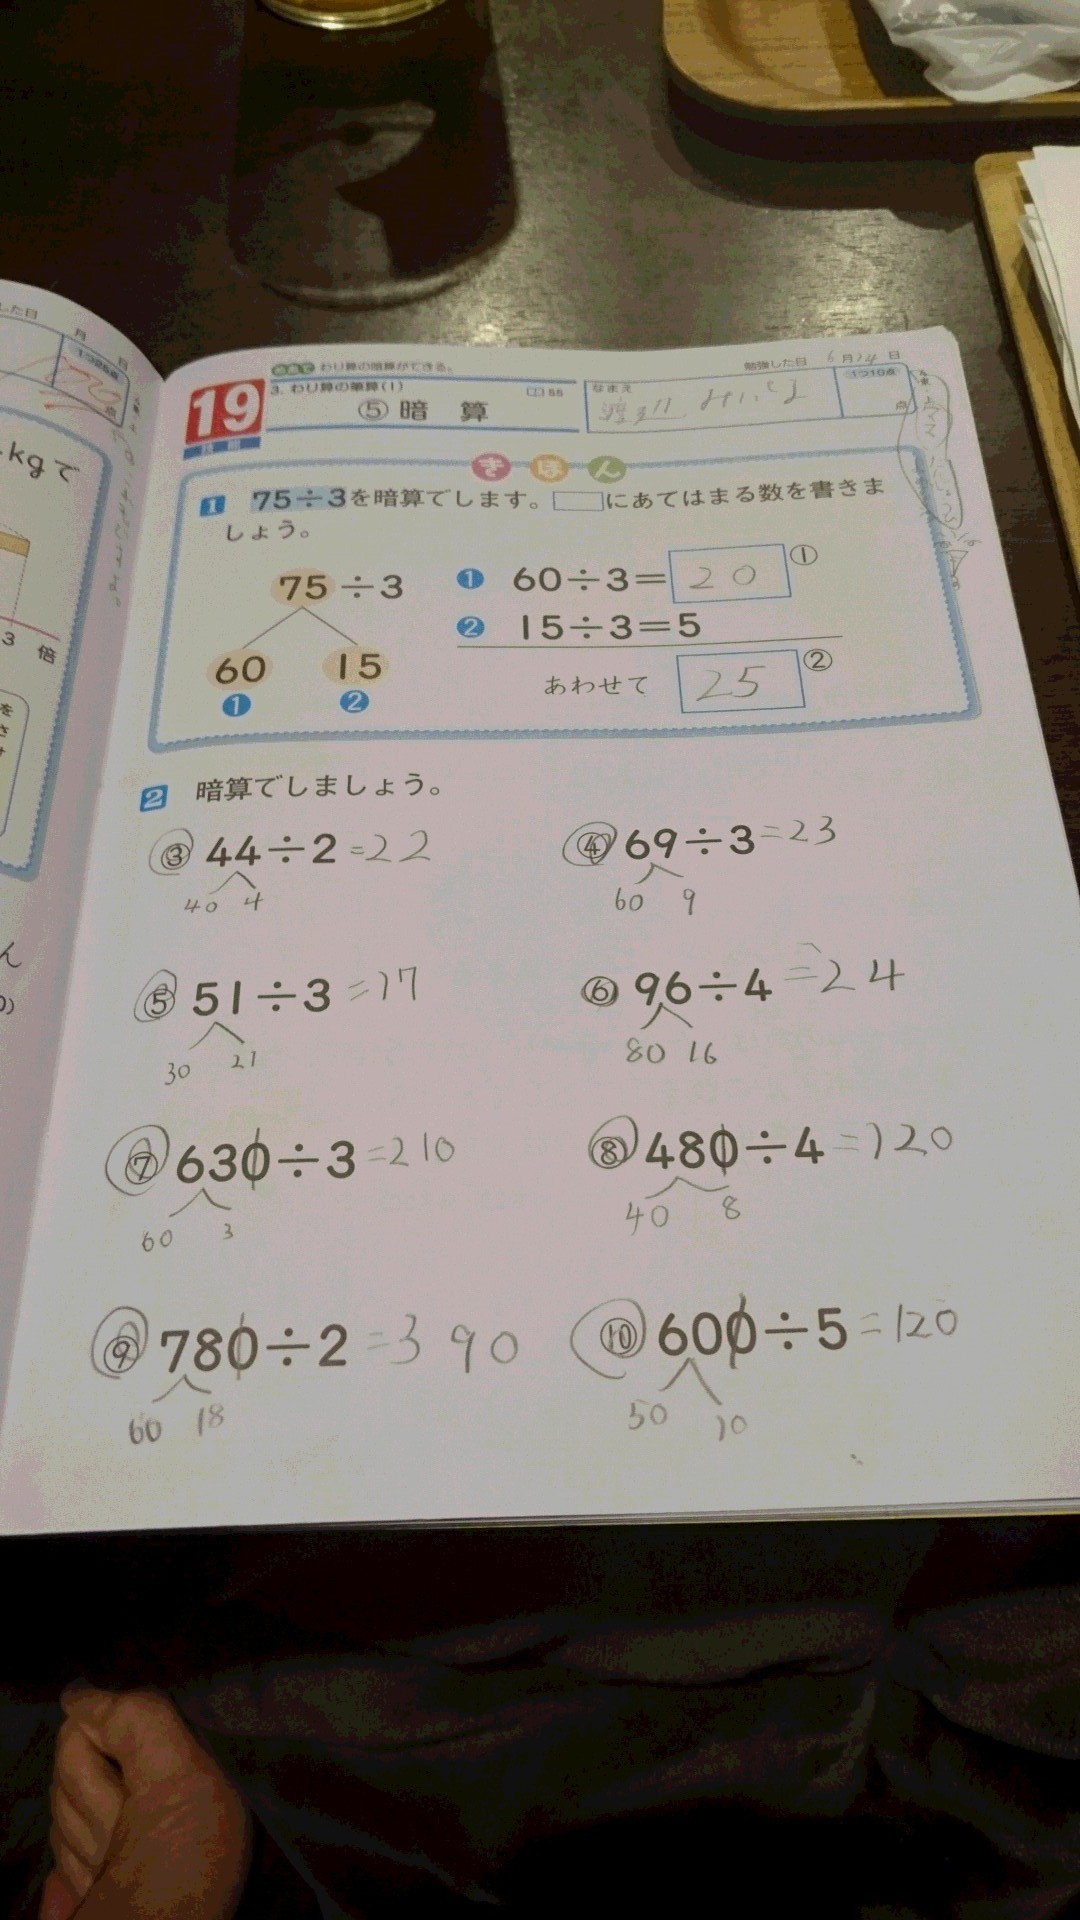 した日 月 日
1つ25点
点
kgで
3 倍
を
ん
めあて わり算の暗算ができる。
勉強した日 6月14日
19
3. わり算の筆算(1)
55
⑤ 暗 算
なまえ
1つ10点
点
きほん
1 75÷3を暗算でします。□にあてはまる数を書きま
しょう。
75÷3
60 15
❶ ❷
❶ 60÷3=20 ①
❷ 15÷3=5
あわせて 25 ②
2 暗算でしましょう。
③ 44÷2=22
40 4
④ 69÷3=23
60 9
⑤ 51÷3=17
30 21
⑥ 96÷4=24
80 16
⑦ 630÷3=210
60 3
⑧ 480÷4=120
40 8
⑨ 780÷2=390
60 18
⑩ 600÷5=120
50 10